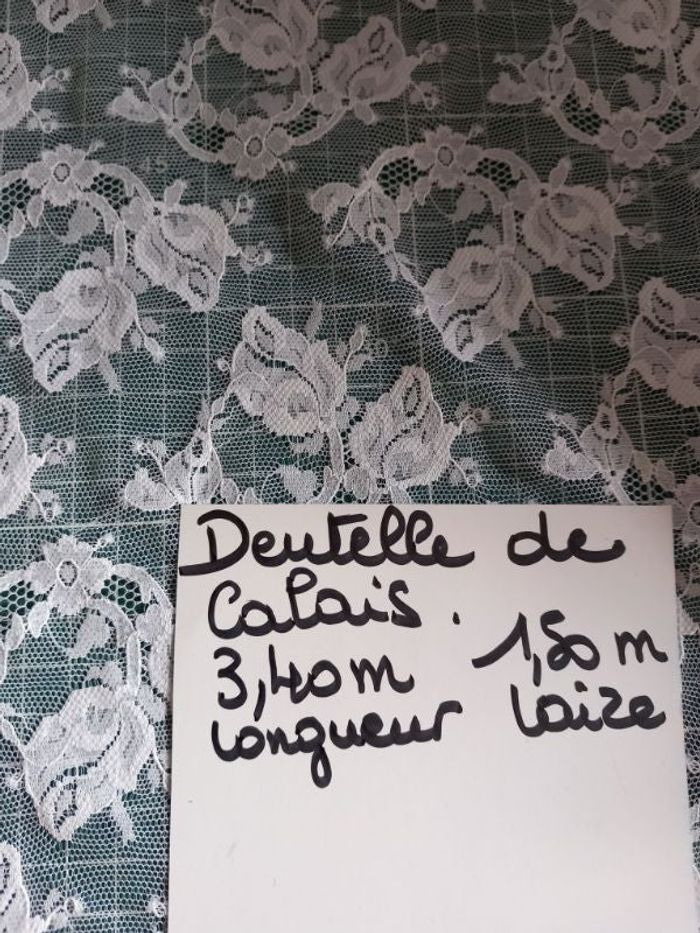 Dentelle de
Calais.
3,40m 1,50 m
longueur laize